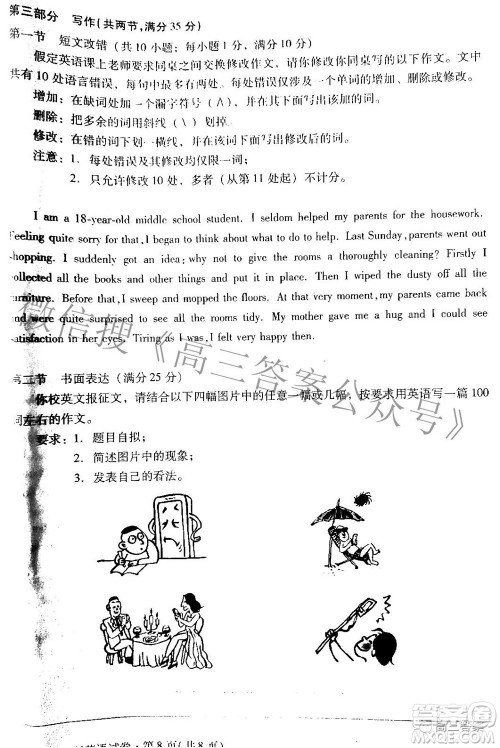 第三部分　写作(共两节,满分 35 分)
第一节　短文改错（共 10 小题；每小题 1 分，满分 10 分）
假定英语课上老师要求同桌之间交换修改作文，请你修改你同桌写的以下作文。文中
共有 10 处语言错误，每句中最多有两处。每处错误仅涉及一个单词的增加、删除或修改。
增加：在缺词处加一个漏字符号（∧），并在其下面写出该加的词。
删除：把多余的词用斜线（\）划掉。
修改：在错的词下划一横线，并在该词下面写出修改后的词。
注意：1. 每处错误及其修改均仅限一词；
2. 只允许修改 10 处，多者（从第 11 处起）不计分。
I am a 18-year-old middle school student. I seldom helped my parents for the housework.
Feeling quite sorry for that, I began to think about what to do. Last Sunday, parents went out
shopping. I suddenly got an idea; why not give the rooms a thoroughly cleaning? Firstly I
collected all the books and other things and put it in place. Then I wiped the dusty off all the
furniture. Before that, I sweep and mopped the floors. At that very moment, my parents came back
and were quite surprised to see all the rooms tidy. My mother gave me a hug and I could see
satisfaction in her eyes. Tiring as I was, I felt very happy.
第二节　书面表达（满分 25 分）
你校英文报征文，请结合以下四幅图片中的任意一幅或几幅，按要求用英语写一篇 100
词左右的作文。
要求：1. 题目自拟；
2. 简述图片中的现象；
3. 发表自己的看法。
微信搜《高三答案公众号》
英语试卷・第 8 页(共 8 页)
高三答案